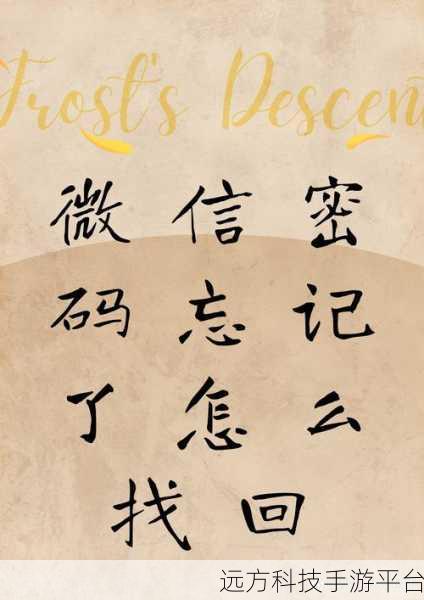 Frost's Descen
微信密
码忘记
了怎么
找回
远方科技手游平台